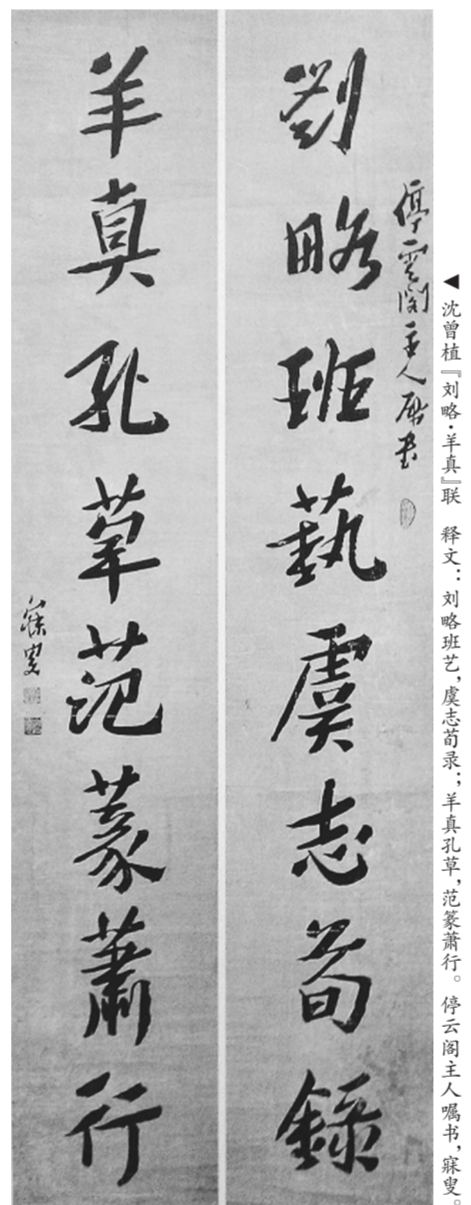 劉略班藝虞志荀錄
停雲閣主人屬書
羊真孔草范篆蕭行
寐叟
◀沈曾植『刘略·羊真』联 释文：刘略班艺，虞志荀录；羊真孔草，范篆萧行。停云阁主人嘱书，寐叟。